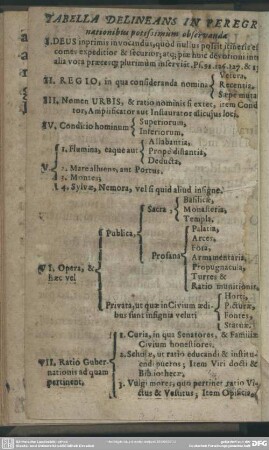 TABELLA DELINEANS IN PEREGR
nationibus potissimum observanda
I. DEUS inprimis invocandus, quod nullus possit itineris es
comes expeditior & securior; atq; piæ huic devotioni in
alia vota præter plurimum inservit. Ps.
II. REGIO, in qua consideranda nomina
Vetera,
Recentia
Sæpe muta
III. Nomen URBIS, & ratio nominis si extet, item Cond
tor, Amplificator aut Instaurator illicujus loci.
IV. Conditio hominum
Superiorum,
Inferiorum,
V.
1. Flumina, eaque aut
Allabantia,
Propè distantia,
Deducta,
2. Mare alluens, aut Portus.
3. Montes;
4. Sylvæ, Nemora, vel si quid aliud insigne.
VI. Opera, &
hæc vel
Publica,
Sacra;
Basilicæ,
Monasteria,
Templa,
Profana
Palatia,
Arces,
Fora,
Armamentaria,
Propugnacula,
Turres &
Ratio munitionis,
Privata, ut quæ in Civium ædi-
bus sunt insignia veluti
Horti,
Picturæ,
Fontes,
Statuæ.
VII. Ratio Guber-
nationis ad quam
pertinent.
1. Curia, in qua Senatores, & Familiæ
Civium honestiores.
2. Scholæ, ut ratio educandi & instituen-
di pueros; Item Viri docti &
Bibliothecæ,
3. Vulgi mores; quò pertinet ratio Vi-
ctus & Vestitus; Item Opificia,